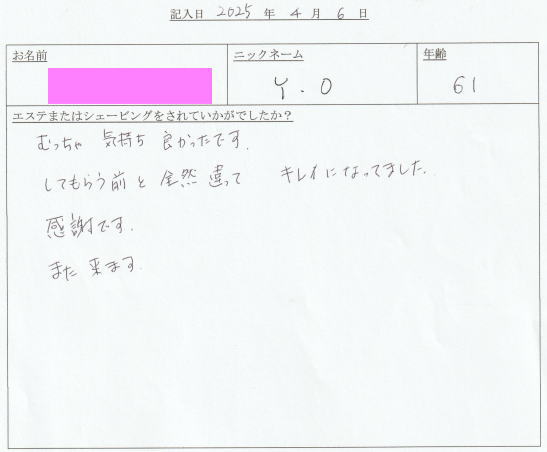 記入日 2025 年 4 月 6 日
お名前 ニックネーム 年齢
Y.O 61
エステまたはシェービングをされていかがでしたか?
むっちゃ 気持ち 良かったです.
してもらう前と 全然 違って キレイになってました.
感謝です.
また 来ます.